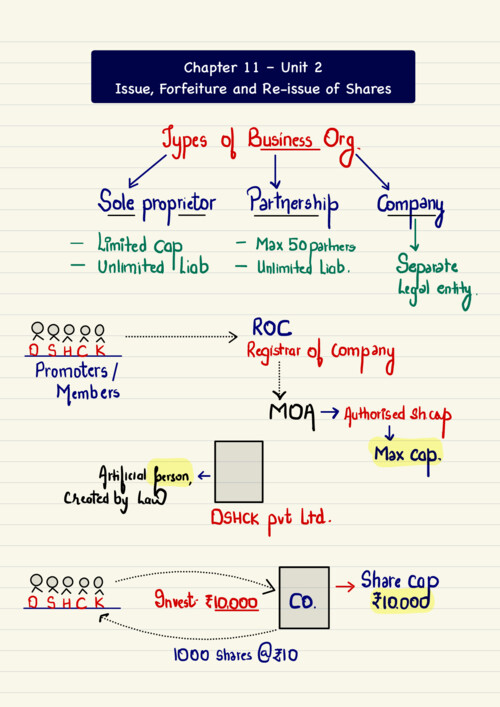 Chapter 11 – Unit 2
Issue, Forfeiture and Re-issue of Shares
Types of Business Org.
Sole proprietor
Partnership
Company
– Limited cap
– Unlimited Liab
– Max 50 partners
– Unlimited Liab.
Separate
Legal entity.
D S H C K
Promoters/
Members
ROC
Registrar of Company
MOA → Authorised Sh cap
Max cap.
Artificial person,
Created by Law
DSHCK pvt Ltd.
D S H C K
Invest ₹10,000
CO.
Share cap
₹10,000
1000 shares @ ₹10